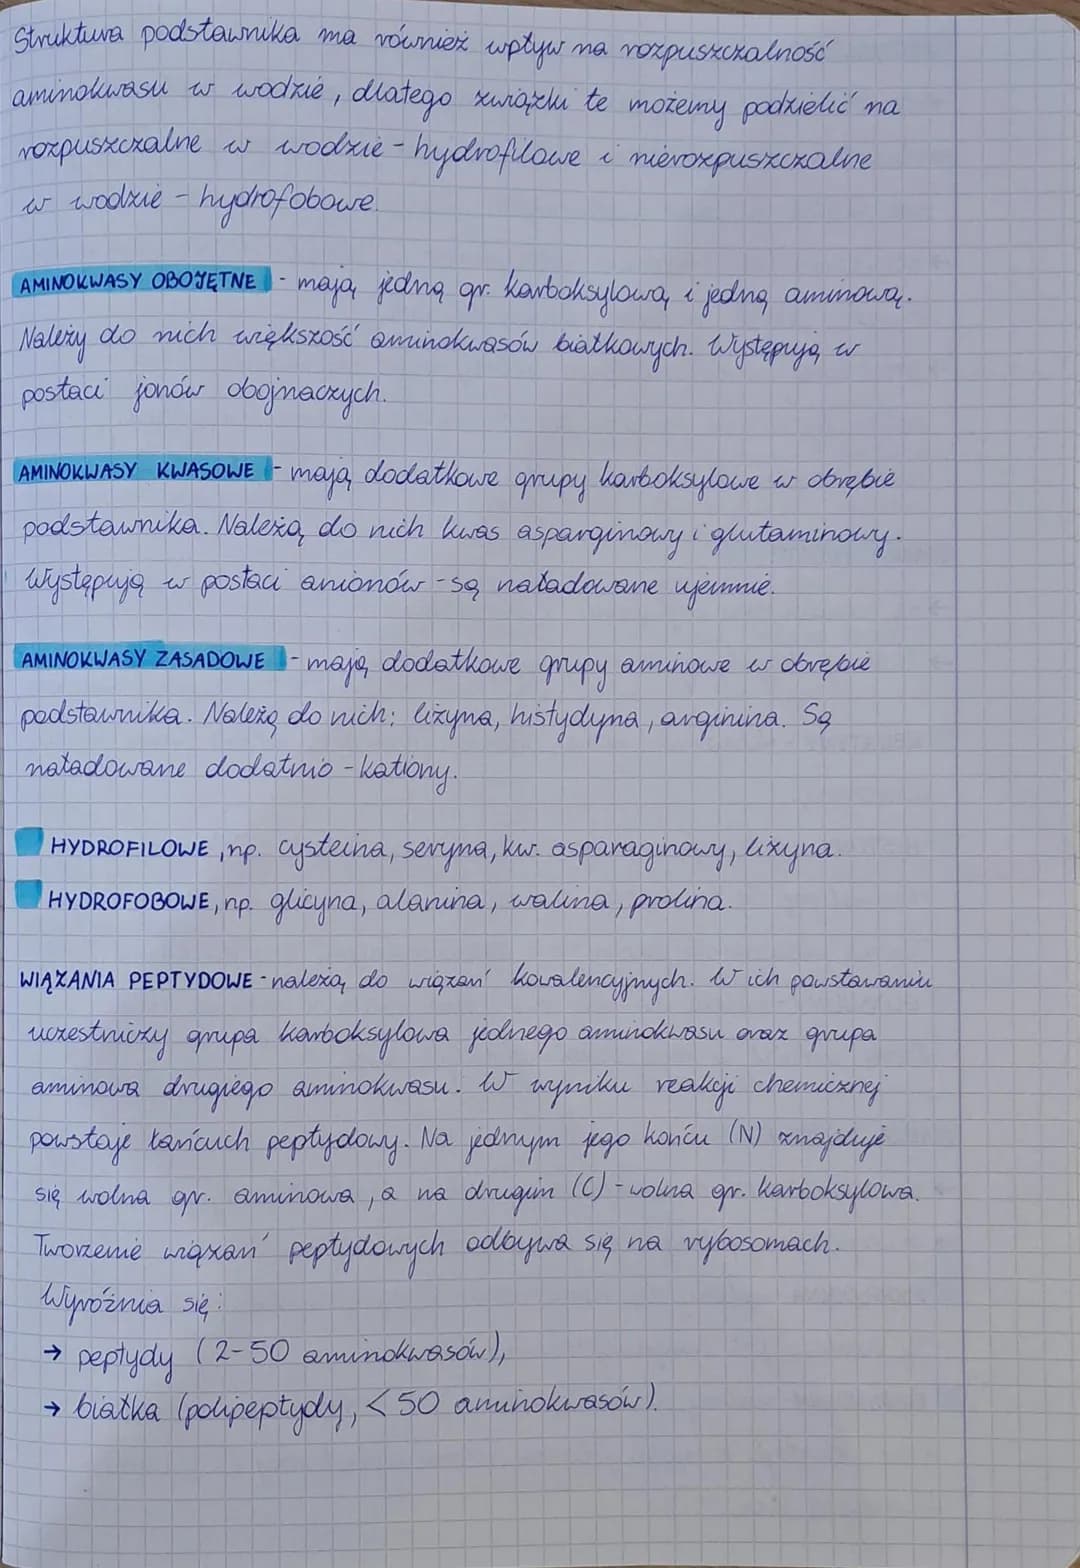 Struktura podstawnika ma również wpływ na rozpuszczalność
aminokwasu w wodzie, dlatego związki te możemy podzielić na
rozpuszczalne w wodzie - hydrofilowe i nierozpuszczalne
w wodzie - hydrofobowe.
AMINOKWASY OBOJĘTNE - mają jedną gr. karboksylową i jedną aminową.
Należy do nich większość aminokwasów białkowych. Występują w
postaci jonów obojnaczych.
AMINOKWASY KWASOWE - mają dodatkowe grupy karboksylowe w obrębie
podstawnika. Należą do nich kwas asparginowy i glutaminowy.
Występują w postaci anionów - są naładowane ujemnie.
AMINOKWASY ZASADOWE - mają dodatkowe grupy aminowe w obrębie
podstawnika. Należą do nich: lizyna, histydyna, arginina. Są
naładowane dodatnio - kationy.
HYDROFILOWE, np. cysteina, seryna, kw. asparaginowy, lizyna.
HYDROFOBOWE, np. glicyna, alanina, walina, prolina.
WIĄZANIA PEPTYDOWE - należą do wiązań kowalencyjnych. W ich powstawaniu
uczestniczy grupa karboksylowa jednego aminokwasu oraz grupa
aminowa drugiego aminokwasu. W wyniku reakcji chemicznej
powstaje łańcuch peptydowy. Na jednym jego końcu (N) znajduje
się wolna gr. aminowa, a na drugim (C) - wolna gr. karboksylowa.
Tworzenie wiązań peptydowych odbywa się na rybosomach.
Wyróżnia się:
→ peptydy (2-50 aminokwasów),
→ białka (polipeptydy, < 50 aminokwasów).